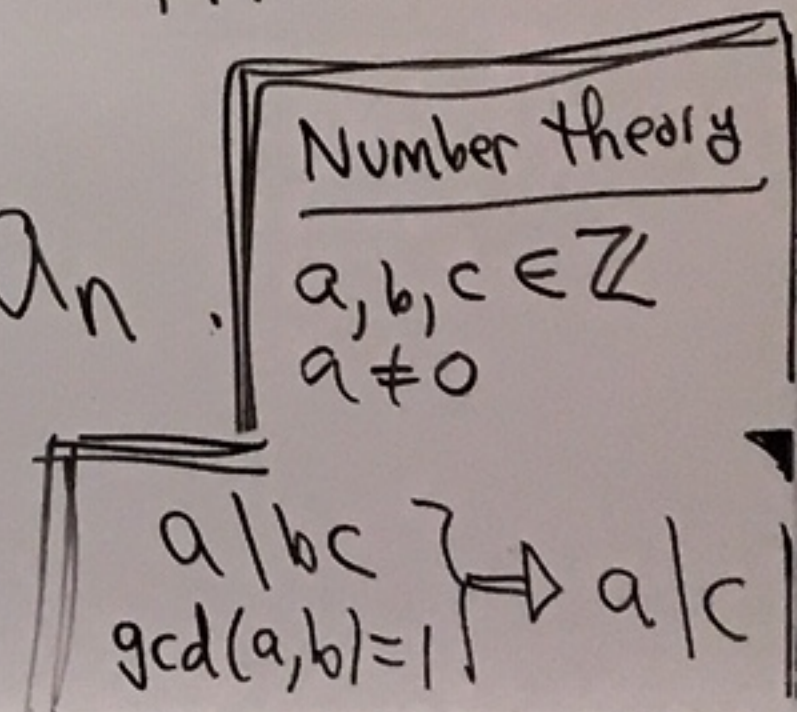 Number theory
a, b, c ∈ ℤ
an .
a ≠ 0
a | bc
gcd(a,b)=1 } ⇒ a | c